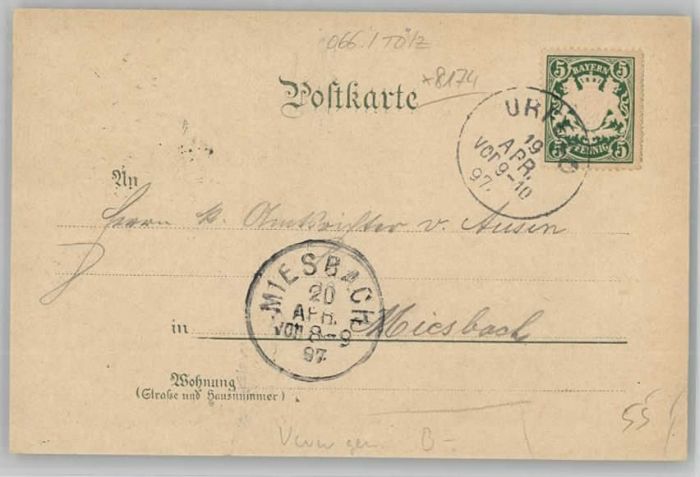 066.1 TÖLZ
*8174
Postkarte
5 BAYERN 5
5 PFENNIG 5
URF
19
APR.
Vor 9-10
97.
An
Herrn k. Amtsrichter v.
MIESBACH
20
APR.
Vor 8-9
97.
in Miesbach
Wohnung
(Straße und Hausnummer)
55
B-